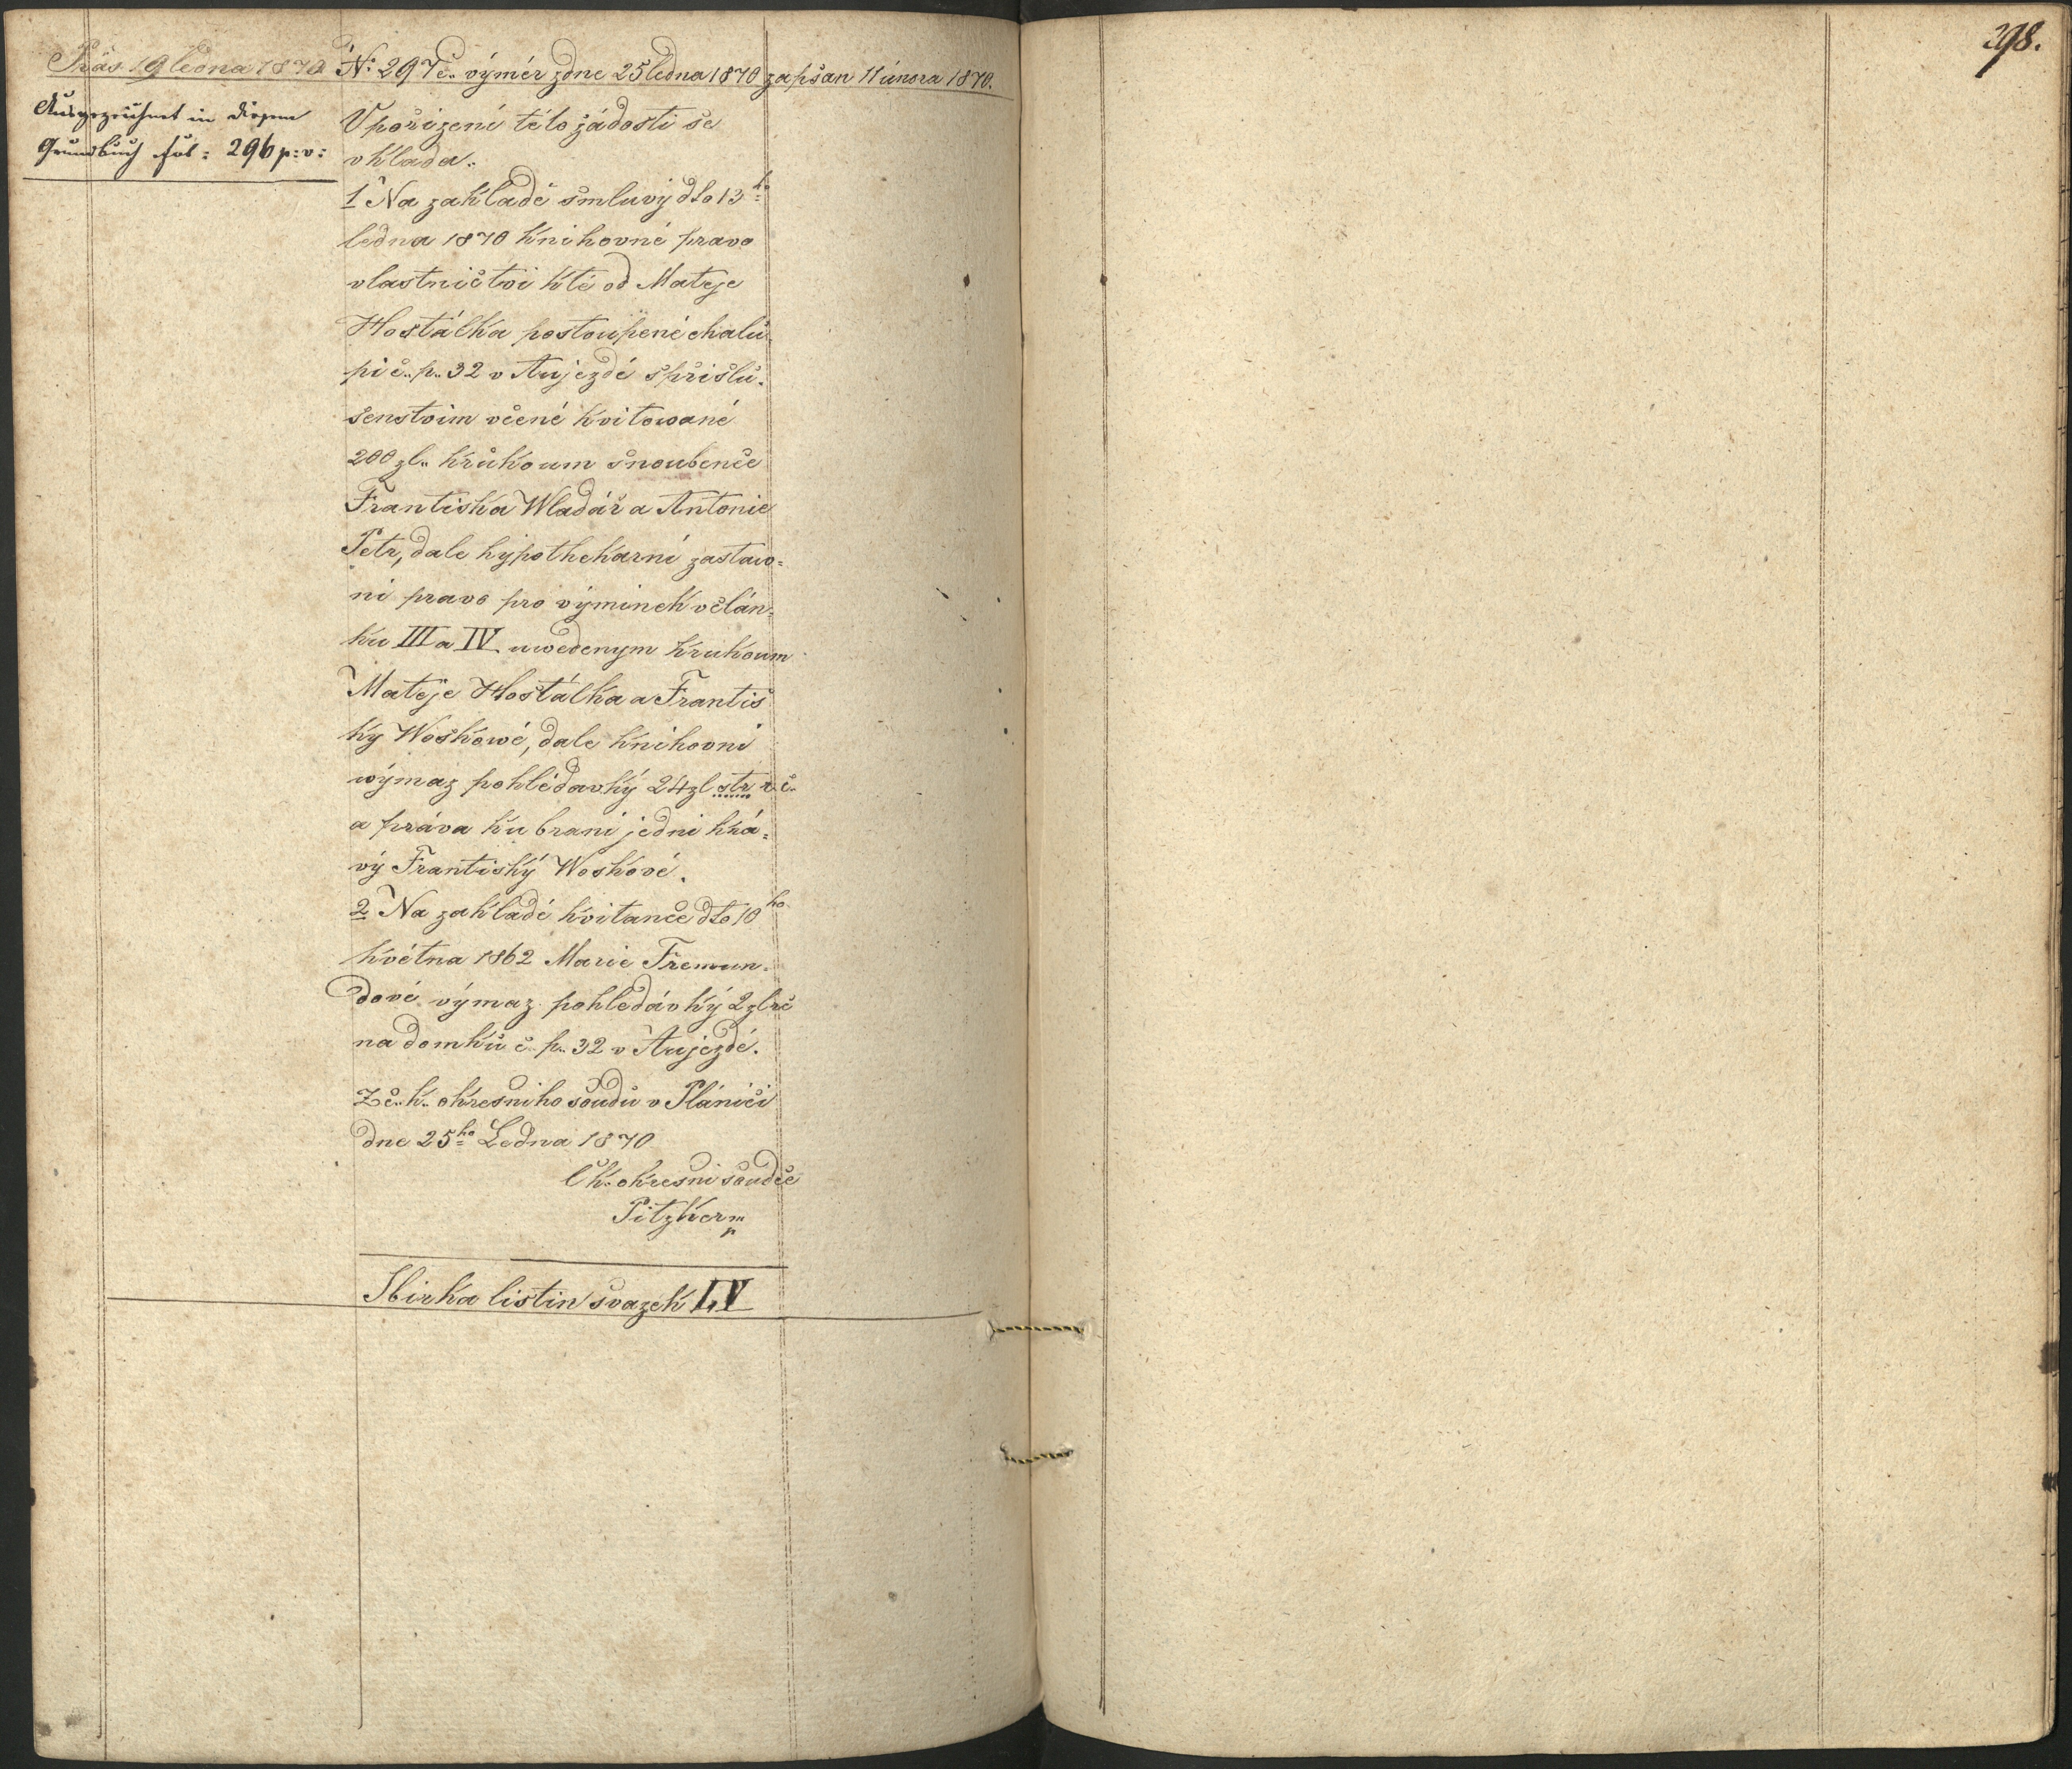 298.
Präs 19 ledna 1870 N: 297 č. výměr zdne 25 ledna 1870 zapsan 11 února 1870.
Ausgezeichnet in diesem
Grundbuch fol: 296 p: v:
V pořizeni této žádosti se
vklada.
1 Na zakladě smluvy dto 13ho
ledna 1870 knihovné pravo
vlastnictvi k té od Mateje
Hostálka postoupené chalu-
pi č. p. 32 v Aujezdě s přislu-
šenstvim v ceně kvitované
200 zl. k rukoum snoubence
Františka Wladář a Antonie
Petr, dale hypothekarní zastaw-
ni pravo pro výminek v člán-
ku III a IV uwedenym k rukoum
Matěje Hostálka a Františ
ky Woskowé, dale knihovni
wýmaz pohlédavky 24 zl str. r. č.
a práva ku braní jedni krá-
vy Františky Woskové.
2 Na zakladé kvitance dto 10ho
května 1862 Marie Fremun-
dové výmaz pohledávky 2 zl rč
na domku č. p. 32 v Aujezdé.
Z c. k. okresniho soudu v Plánici
dne 25ho Ledna 1870
C k. okresni soudce
Pitzker m
p
Sbirka listin svazek LV